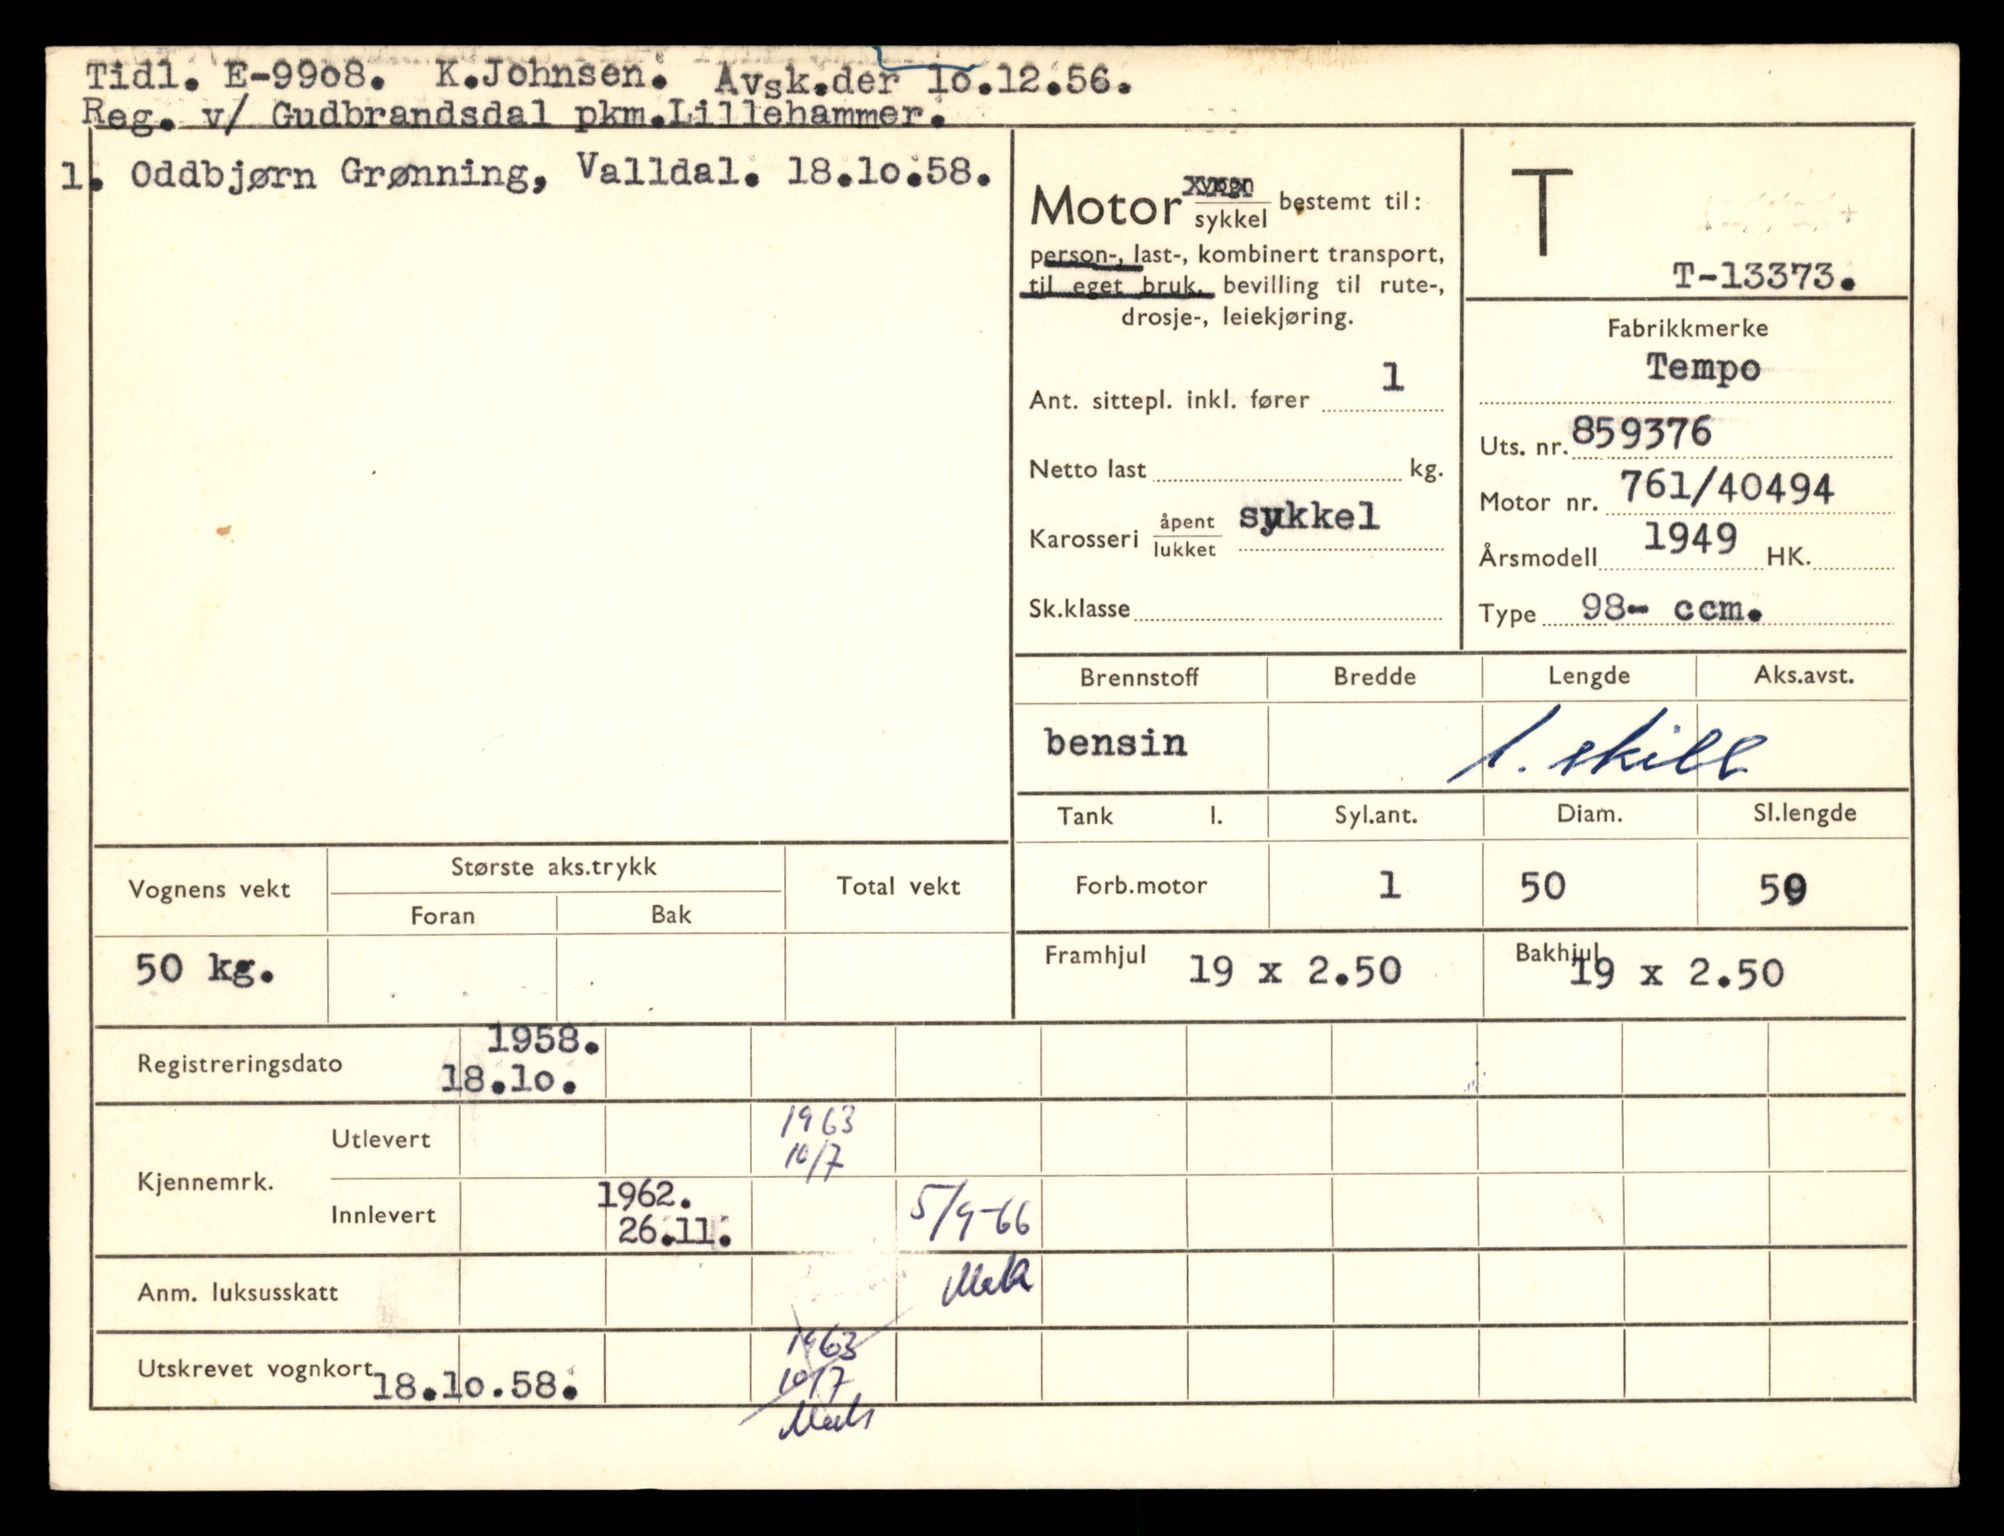 Tidl. E-9908. K.Johnsen. Avsk.der 10.12.56.
Reg. v/ Gudbrandsdal pkm.Lillehammer.
1. Oddbjørn Grønning, Valldal. 18.10.58.
Motor vogn sykkel bestemt til:
person-, last-, kombinert transport,
til eget bruk, bevilling til rute-,
drosje-, leiekjøring.
Ant. sittepl. inkl. fører 1
Netto last kg.
Karosseri åpent lukket sykkel
Sk.klasse
T
T-13373.
Fabrikkmerke
Tempo
Uts. nr. 859376
Motor nr. 761/40494
Årsmodell 1949 HK.
Type 98- ccm.
Brennstoff Bredde Lengde Aks.avst.
bensin 1. skill
Tank l. Syl.ant. Diam. Sl.lengde
Forb.motor 1 50 50
Framhjul 19 x 2.50 Bakhjul 19 x 2.50
Vognens vekt Største aks.trykk Total vekt
Foran Bak
50 kg.
Registreringsdato 1958.
18.10.
Kjennemrk. Utlevert 1963
10/7
Innlevert 1962. 5/9-66
26.11.
Anm. luksusskatt
Utskrevet vognkort 18.10.58. 1963
10/7